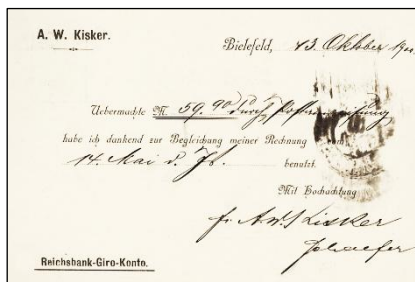 A. W. Kisker.
Bielefeld, 13. Oktober 19
Uebermachte M. 59.90 durch Postanweisung
habe ich dankend zur Begleichung meiner Rechnung vom
14. Mai d. Js. benutzt.
Mit Hochachtung
fr. A. W. Kisker
Schaefer
Reichsbank-Giro-Konto.